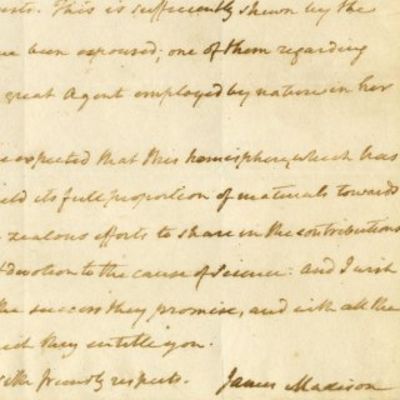 This is sufficiently shewn by the
been espoused; one of them regarding
great Agent employed by nature in her
expected that this hemisphere, which has
its full proportion of materials towards
zealous efforts to share in the contributions
devotion to the cause of science: And I wish
the success they promise, and with all the
they entitle you.
with friendly respects. James Madison